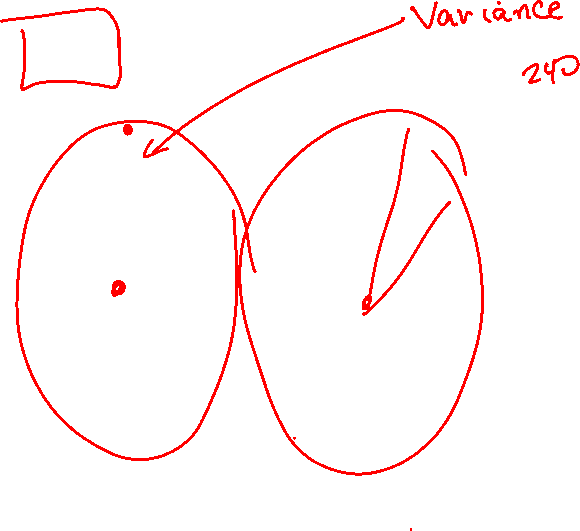 Variance
240